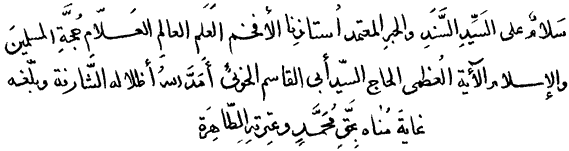 سَلامٌ على السَّيِّدِ السَّنَدِ والحبر المعتمد اُستاذِنا الأفخم العَلَم العالم العَلّام حُجَّةِ المسلمين
والإسلام الآية العُظمى الحاج السيّد أبي القاسم الخوئيّ أمَدَّ اللهُ أظلاله الشّارفة وبلّغه
غايةَ مُناه بحَقِّ مُحَمَّدٍ وعِترتِهِ الطّاهِرَة